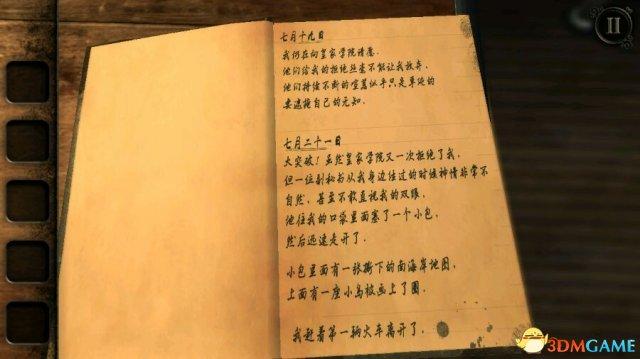 七月十九日
我仍在向皇家学院请愿.
他们给我的拒绝丝毫不能让我放弃.
他们持续不断的喧嚣似乎只是单纯的
要遮掩自己的无知.
七月二十一日
大突破！虽然皇家学院又一次拒绝了我,
但一位副秘书从我身边经过的时候神情非常不
自然, 甚至不敢直视我的双眼.
他往我的口袋里面塞了一个小包,
然后迅速走开了.
小包里面有一张撕下的南海岸地图,
上面有一座小岛被画上了圈.
我赶着第一辆火车离开了.
3DMGAME